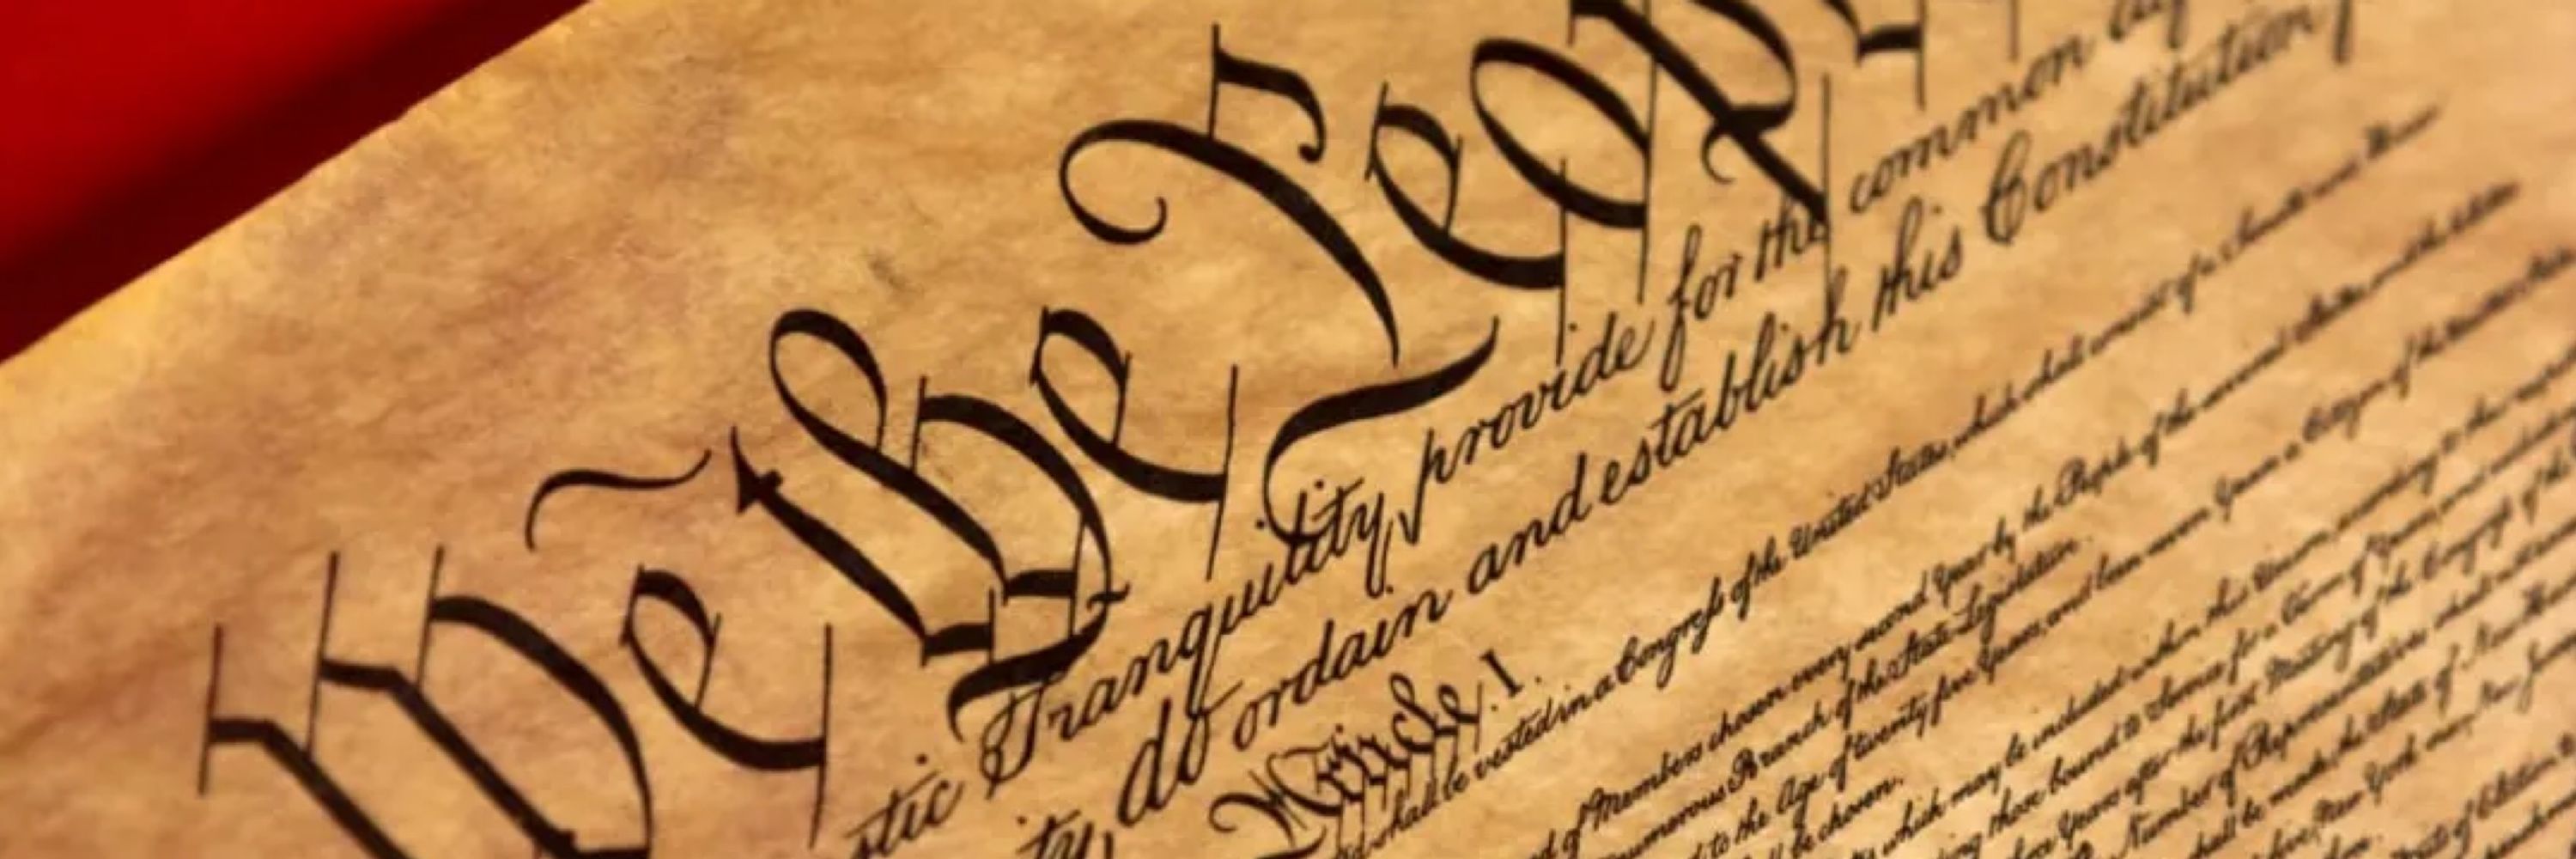 We the Peop
stic Tranquility, provide for the common
ty, do ordain and establish this Constitution
Article. I.
shall be vested in a Congress of the United States, which shall consist of a Senate and
of Members chosen every second Year by the People of the several States, and the
numerous Branch of the State Legislature.
to the Age of twenty five Years, and been seven Years a Citizen of the United
be chosen.
which may be included within this Union, according to their
those bound to Service for a Term of Years, and
Years after the first Meeting of the Congress of the
Number of Representatives shall not
shall be made, the State of New
five, New York six, New Jersey